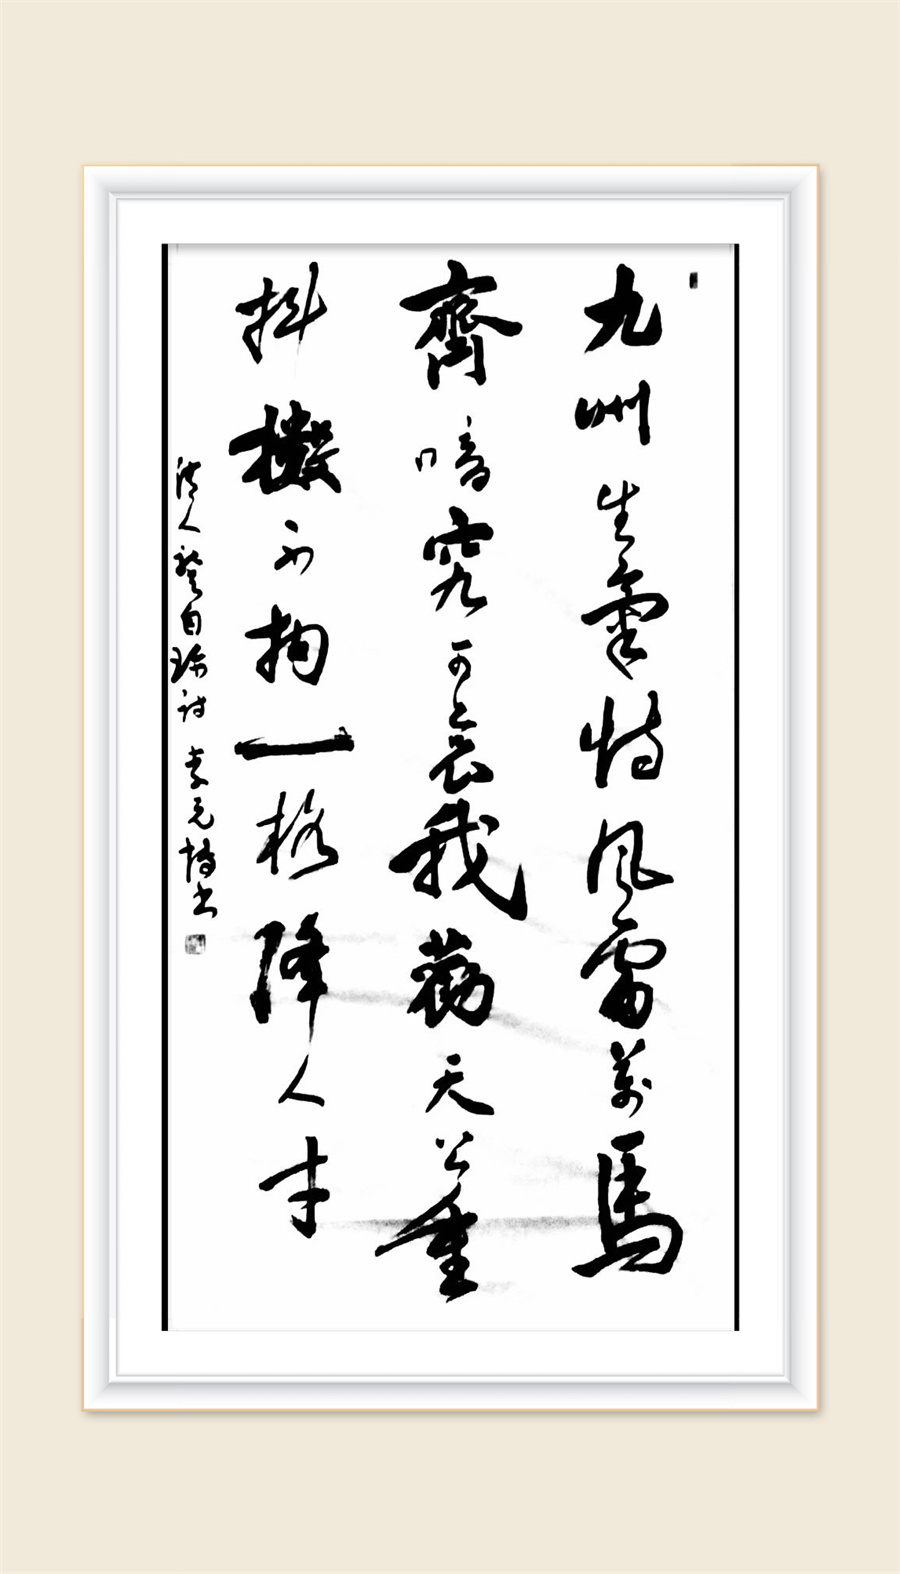 九州生氣恃風雷萬馬
齊喑究可哀我勸天公重
抖擻不拘一格降人才
清人龔自珍詩 李元博書